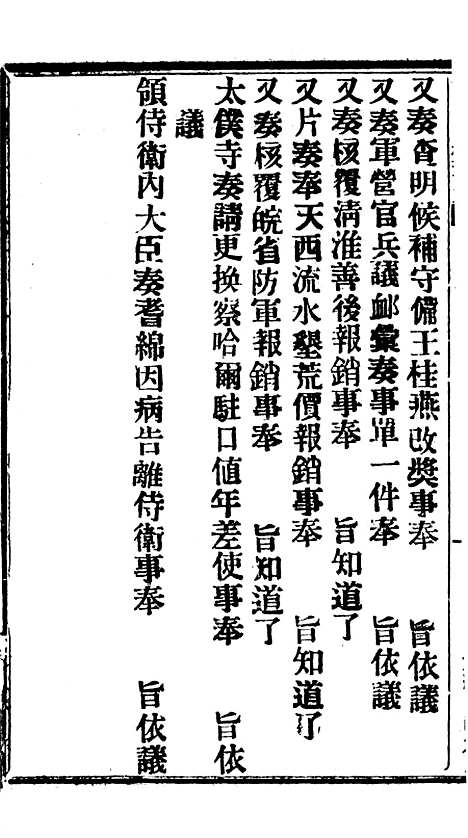 又奏查明候補守備王桂燕改獎事奉　旨依議
又奏軍營官兵議卹彙奏事單一件奉　旨依議
又奏核覆淸淮善後報銷事奉　旨知道了
又片奏奉天西流水墾荒價報銷事奉　旨知道了
又奏核覆皖省防軍報銷事奉　旨知道了
太僕寺奏請更換察哈爾駐口値年差使事奉　旨依
議
領侍衛內大臣奏耆綿因病告離侍衛事奉　旨依議